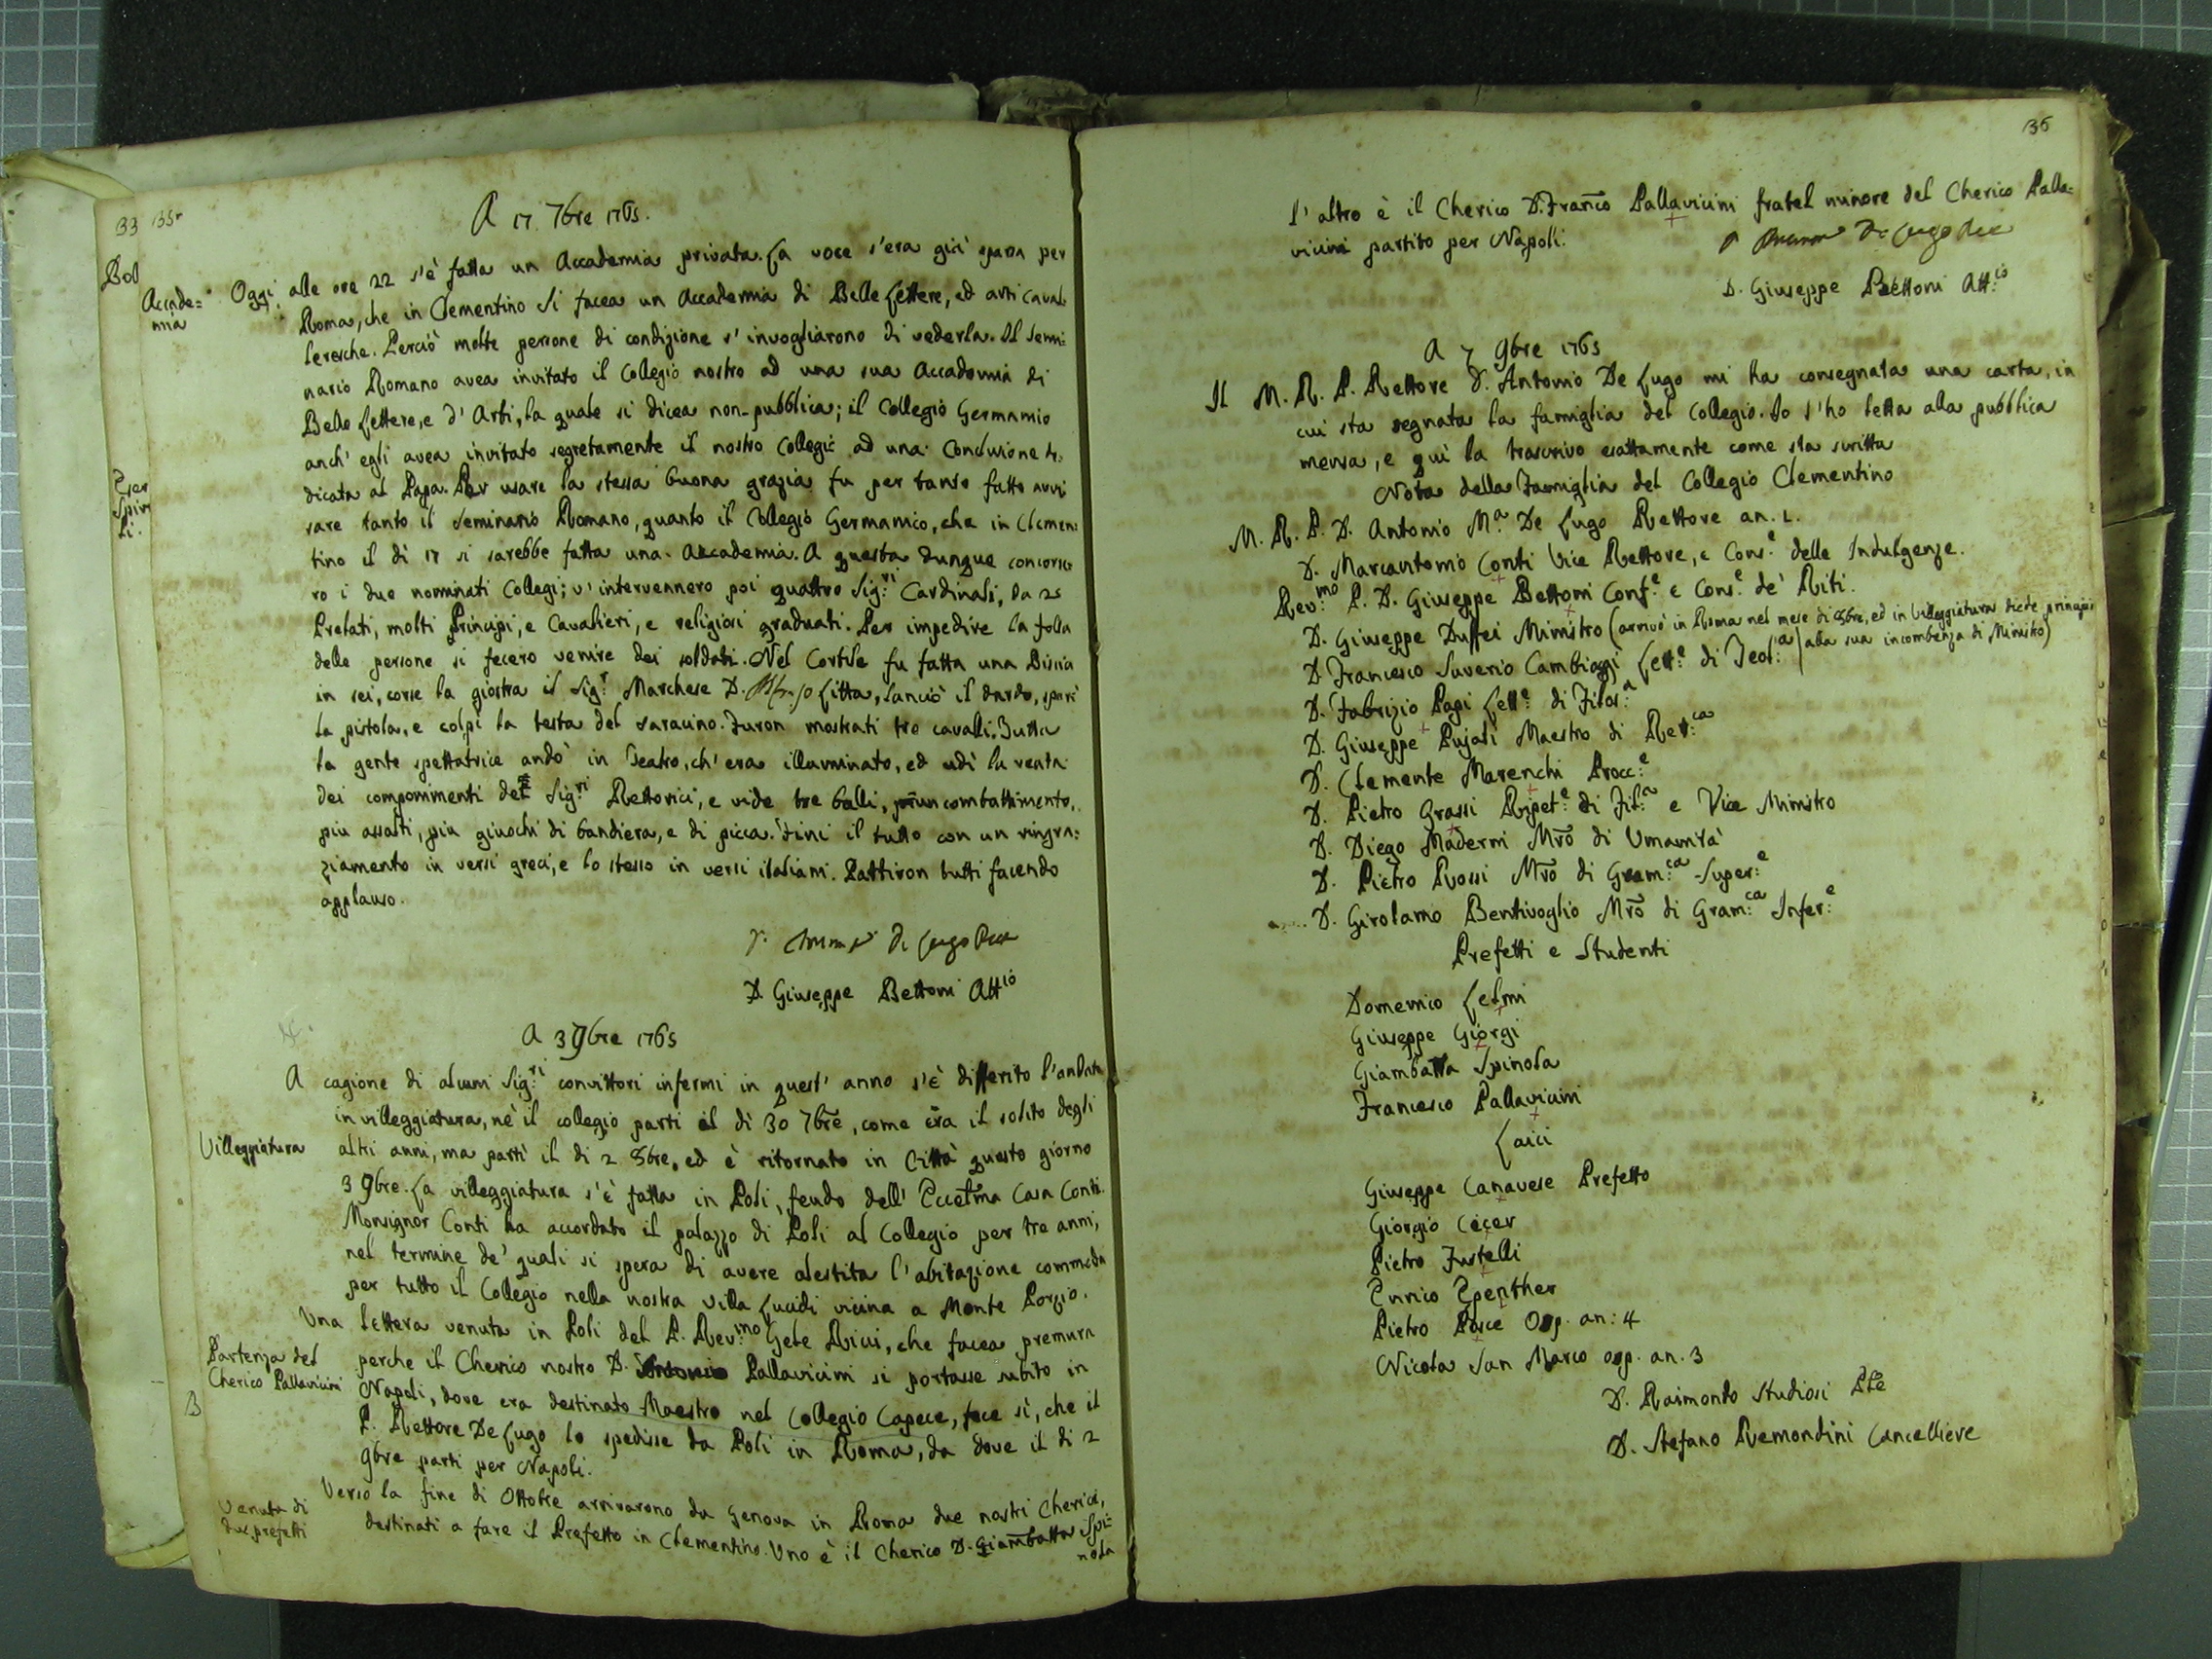 33 135
A 17. 7bre 1765.
Bol
Accade=
mia
Oggi alle ore 22 s'è fatta un Accademia privata. La voce s'era già sparsa per
Roma, che in Clementino si facea un Accademia di Belle Lettere, ed arti caval=
leresche. Perciò molte persone di condizione s'invogliarono di vederla. Il Semi=
nario Romano avea invitato il Collegio nostro ad una sua Accademia di
Belle Lettere, e d'Arti, la quale si dicea non-pubblica; il Collegio Germanico
anch'egli avea invitato segretamente il nostro Collegio ad una Conclusione de=
dicata al Papa. Per usare la stessa buona grazia fu per tanto fatto avvi
sare tanto il Seminario Romano, quanto il Collegio Germanico, che in Clemen=
tino il dì 17 si sarebbe fatta una Accademia. A questa dunque concorse=
ro i due nominati Collegi; v'intervennero poi quattro Sig.ri Cardinali, da 25
Prelati, molti Principi, e Cavalieri, e religiosi graduati. Per impedire la folla
delle persone si fecero venire dei soldati. Nel Cortile fu fatta una Biscia
in sei, corse la giostra il Sig.r Marchese D. Litta, lanciò il dardo, sparò
la pistola, e colpì la testa del saracino. Furon mostrati tre cavalli. Tutta
la gente spettatrice andò in Teatro, ch'era illuminato, ed udì la recita
dei componimenti dei Sig.ri Rettorici, e vide tre balli, un combattimento,
più assalti, più giuochi di bandiera, e di picca. Finì il tutto con un ringra=
ziamento in versi greci, e lo stesso in versi italiani. Partiron tutti facendo
applauso.
D. De Lugo
D. Giuseppe Bettoni Att.io
A 3 9bre 1765
A cagione di alcuni Sig.ri convittori infermi in quest'anno s'è differito l'andata
in villeggiatura, nè il collegio partì il dì 30 7bre, come era il solito degli
Villeggiatura
altri anni, ma partì il dì 2 8bre, ed è ritornato in Città questo giorno
3 9bre. La villeggiatura s'è fatta in Poli, feudo dell'Eccellma Casa Conti.
Monsignor Conti ha accordato il palazzo di Poli al Collegio per tre anni,
nel termine de' quali si spera di avere alestita l'abitazione commoda
per tutto il Collegio nella nostra villa Lucidi vicina a Monte Porzio.
Una lettera venuta in Poli del P. Rev.mo Gele Ricci, che facea premura
Partenza del
Cherico Pallavicini
perche il Cherico nostro D. Antonio Pallavicini si portasse subito in
Napoli, dove era destinato Maestro nel Collegio Capece, fece sì, che il
P. Rettore De Lugo lo spedisse da Poli in Roma, da dove il dì 2
9bre partì per Napoli.
Verso la fine di Ottobre arrivarono da Genova in Roma due nostri Cherici,
Venuta di
due prefetti
destinati a fare il Prefetto in Clementino. Uno è il Cherico D. Giambatta Spi=
nola
136
l'altro è il Cherico D. Franco Pallavicini fratel minore del Cherico Palla=
vicini partito per Napoli.
De Lugo
D. Giuseppe Bettoni Att.io
A 7 9bre 1765
Il M. R. P. Rettore D. Antonio De Lugo mi ha consegnata una carta, in
cui sta segnata la famiglia del Collegio. Io l'ho letta alla pubblica
mensa, e quì la trascrivo esattamente come sta scritta
Nota della Famiglia del Collegio Clementino
M. R. P. D. Antonio M.a De Lugo Rettore an. 2.
D. Marcantonio Conti Vice Rettore, e Cons.e delle Indulgenze.
Rev.mo P. D. Giuseppe Bettoni Conf.e e Cons.e de' Riti.
D. Giuseppe Duffei Ministro (arrivò in Roma nel mese di 8bre, ed in villeggiatura diede principio
alla sua incombenza di Ministro)
D. Francesco Saverio Cambiaggi Lett.e di Teol.a
D. Fabrizio Papi Lett.e di Filos.a
D. Giuseppe Pujati Maestro di Ret.ca
D. Clemente Marenchi Procc.e
D. Pietro Grassi Ripet.e di Fil.a e Vice Ministro
D. Diego Maderni Mro di Umanità
D. Pietro Rossi Mro di Gram.ca Super.e
D. Girolamo Bentivoglio Mro di Gram.ca Infer.e
Prefetti e Studenti
Domenico Lelmi
Giuseppe Giorgi
Giambatta Spinola
Francesco Pallavicini
Laici
Giuseppe Canavese Prefetto
Giorgio Cecer
Pietro Fustelli
Enrico Epenther
Pietro Pesce Osp. an: 4
Nicola San Marco osp. an. 3
D. Raimondo Studiosi Ple
D. Stefano Remondini Cancelliere